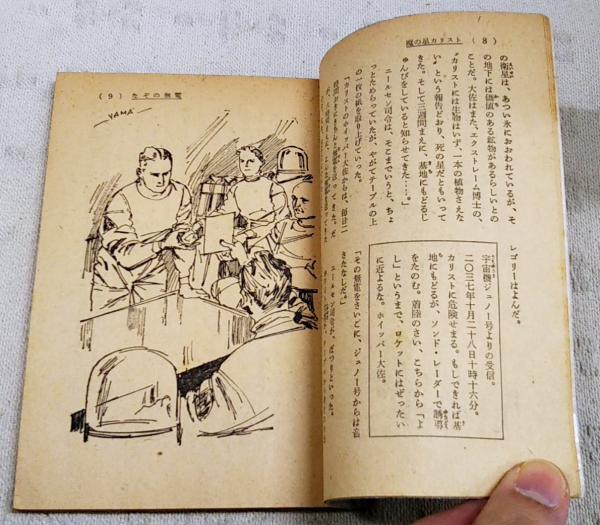 魔の星カリスト (8)
の衛星は、あつい氷におおわれているが、そ
の地下には価値のある鉱物があるらしいとの
ことだ。大佐はまた、エクストレーム博士の、
〝カリストには生物はいず、一本の植物さえな
い〟という報告どおり、死の星だともいって
きた。そして三週間まえに、基地にもどるじ
ゅんびをしていると知らせてきた……。」
ニールセン司令は、そこまでいうと、ちょ
っとためらっていたが、やがてテーブルの上
の一枚の紙を取り上げていった。
「カリストのホイッパー大佐からは、毎廿二
レゴリーはよんだ。
宇宙機ジュノー号よりの受信。
二〇三七年十月二十八日十時十六分。
カリストに危険せまる。もしできれば基
地にもどるが、ソンド・レーダーで誘導
をたのむ。着陸のさい、こちらから「よ
し」というまで、ロケットにはぜったい
に近よるな。ホイッパー大佐。
「その無電をさいごに、ジュノー号からは音
さたなしだ。」
ニールセン司令は、ぽつりといった。
(9) なぞの無電
YAMA